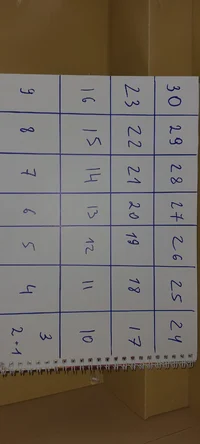 30 29 28 27 26 25 24
23 22 21 20 19 18 17
16 15 14 13 12 11 10
9 8 7 6 5 4 3
2+1